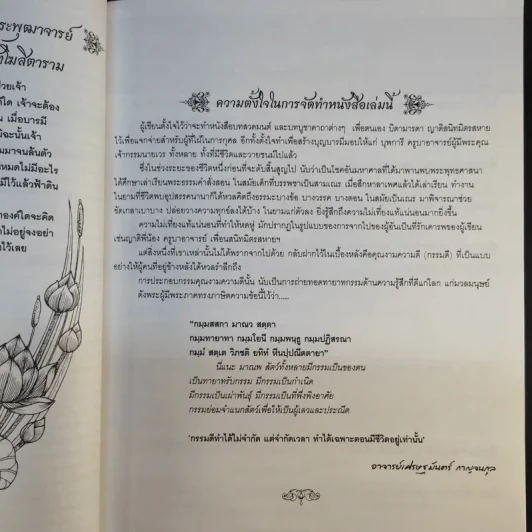 ระพุฒาจารย์
ังโฆสิตาราม
วยเจ้า
ที่ใด เจ้าจะต้อง
น เมื่อบารมี
มิฉะนั้นเจ้า
มมาจนล้นตัว
หมดไม่มีอะไร
มีไว้แล้วฟ้าดิน
องค์ใดจะคิด
าไม่อยู่จงอย่า
ไว้เลย
ความตั้งใจในการจัดทำหนังสือเล่มนี้
ผู้เขียนตั้งใจไว้ว่าจะทำหนังสือบทสวดมนต์ และบทบูชาคาถาต่างๆ เพื่อตนเอง บิดามารดา ญาติสนิทมิตรสหาย
ไว้เพื่อแจกจ่ายสำหรับผู้ที่ใฝ่ในการกุศล อีกทั้งตั้งใจทำเพื่อสร้างบุญบารมีมอบให้แก่ บุพการี ครูบาอาจารย์ผู้มีพระคุณ
เจ้ากรรมนายเวร ทั้งหลาย ทั้งที่มีชีวิตและวายชนม์ไปแล้ว
ซึ่งในช่วงระยะของชีวิตหนึ่งที่จะดับสิ้นสูญไป นับว่าเป็นโชคอันมหาศาลที่ได้มาพานพบพระพุทธศาสนา
ได้ศึกษาเล่าเรียนพระธรรมคำสั่งสอน ในสมัยเด็กที่บรรพชาเป็นสามเณร เมื่อสึกหาลาเพศแล้วได้เล่าเรียน ทำงาน
ในยามที่ชีวิตพบอุปสรรคนานาก็ได้หวลคิดถึงธรรมะบางข้อ บางวรรค บางตอน ในสมัยเป็นสามเณร มาพิจารณาช่วย
ขัดเกลาเบาบาง ปล่อยวางความทุกข์ลงได้บ้าง ในยามแก่ตัวลง ยิ่งรู้สึกถึงความไม่เที่ยงแท้แน่นอนมากยิ่งขึ้น
ความไม่เที่ยงแท้แน่นอนที่ทำให้หดหู่ มักปรากฏในรูปแบบของการจากไปของผู้อันเป็นที่รักเคารพของผู้เขียน
เช่นญาติพี่น้อง ครูบาอาจารย์ เพื่อนสนิทมิตรสหายฯ
แต่สิ่งหนึ่งที่เขาเหล่านั้นไม่ได้พรากจากไปด้วย กลับฝากไว้ในเบื้องหลังคือคุณงามความดี (กรรมดี) ที่เป็นแบบ
อย่างให้ผู้คนที่อยู่ข้างหลังได้หวลรำลึกถึง
การประกอบกรรมคุณงามความดีนั้น นับเป็นการถ่ายทอดทายาทกรรมด้านความรู้สึกที่ดีแก่โลก แก่มวลมนุษย์
ดังพระผู้มีพระภาคทรงภาษิตความข้อนี้ไว้ว่า.....
“กมฺมสฺสกา มาณว สตฺตา
กมฺมทายาทา กมฺมโยนี กมฺมพนฺธู กมฺมปฏิสรณา
กมฺมํ สตฺเต วิภชติ ยทิทํ หีนปฺปณีตตายา”
นี่แนะ มาณพ สัตว์ทั้งหลายมีกรรมเป็นของตน
เป็นทายาทรับกรรม มีกรรมเป็นกำเนิด
มีกรรมเป็นเผ่าพันธุ์ มีกรรมเป็นที่พึ่งพิงอาศัย
กรรมย่อมจำแนกสัตว์เพื่อให้เป็นผู้เลวและประณีต
'กรรมดีทำได้ไม่จำกัด แต่จำกัดเวลา ทำได้เฉพาะตอนมีชีวิตอยู่เท่านั้น'
อาจารย์เศรษฐมันตร์ กาญจนกุล